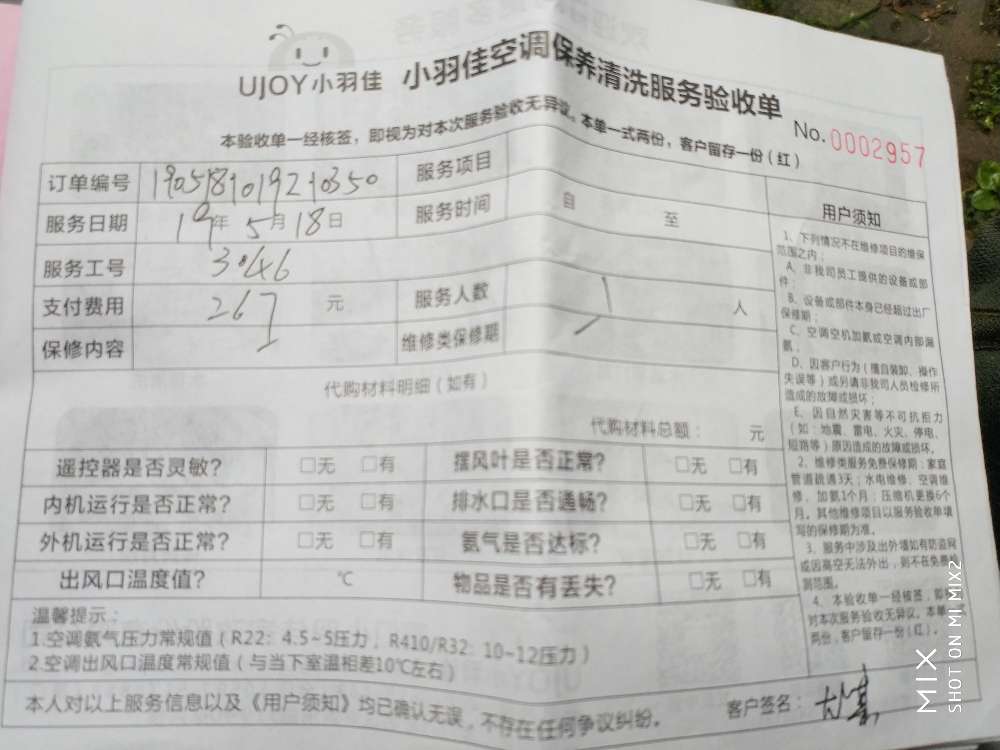 UJOY小羽佳 小羽佳空调保养清洗服务验收单
本验收单一经核签，即视为对本次服务验收无异议。本单一式两份，客户留存一份（红）
No.0002957
订单编号 服务项目
服务日期 19年5月18日 服务时间 自 至
服务工号 3046
支付费用 267 元 服务人数 1 人
保修内容 维修类保修期
代购材料明细（如有）
代购材料总额： 元
遥控器是否灵敏？ □无 □有 摆风叶是否正常？ □无 □有
内机运行是否正常？ □无 □有 排水口是否通畅？ □无 □有
外机运行是否正常？ □无 □有 氨气是否达标？ □无 □有
出风口温度值？ ℃ 物品是否有丢失？ □无 □有
温馨提示：
1.空调氨气压力常规值（R22：4.5~5压力，R410/R32：10~12压力）
2.空调出风口温度常规值（与当下室温相差10℃左右）
本人对以上服务信息以及《用户须知》均已确认无误，不存在任何争议纠纷。 客户签名：
用户须知
1、下列情况不在维修项目的维保
范围之内：
A、非我司员工提供的设备或部
件；
B、设备或部件本身已经超过出厂
保修期；
C、空调空机加氨或空调内部漏
氨，
D、因客户行为（擅自装卸、操作
失误等）或另请非我司人员检修所
造成的故障或损坏；
E、因自然灾害等不可抗拒力
（如：地震、雷电、火灾、停电、
短路等）原因造成的故障或损坏。
2、维修类服务免费保修期：家庭
管道疏通3天；水电维修、空调维
修、加氨1个月；压缩机更换6个
月。其他维修项目以服务验收单填
写的保修期为准。
3、服务中涉及出外墙如有防盗网
或因高空无法外出，则不在免费检
测范围。
4、本验收单一经核签，即
对本次服务验收无异议。本单
两份，客户留存一份（红）。
MIX
SHOT ON MI MIX2